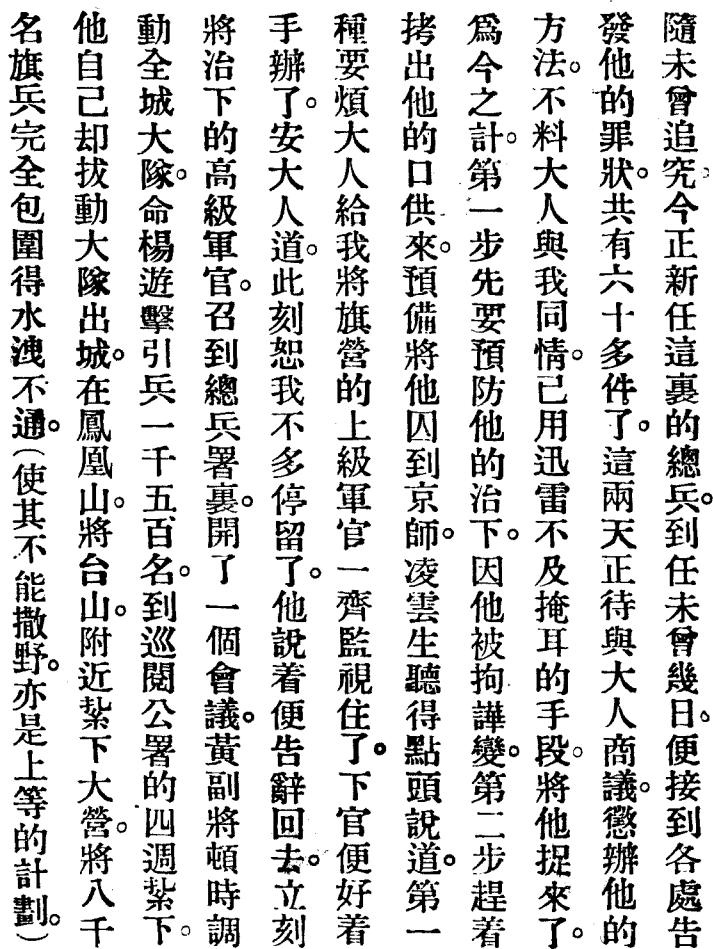 隨未曾追究。今正新任這裏的總兵。到任未曾幾日。便接到各處告
發他的罪狀。共有六十多件了。這兩天正待與大人商議。懲辦他的
方法。不料大人與我同情。已用迅雷不及掩耳的手段。將他捉來了。
爲今之計。第一步先要預防他的治下。因他被拘譁變。第二步趕着
拷出他的口供來。預備將他囚到京師。凌雲生聽得點頭說道。第一
種要煩大人給我將旗營的上級軍官一齊監視住了。下官便好着
手辦了。安大人道。此刻恕我不多停留了。他說着便告辭回去。立刻
將治下的高級軍官。召到總兵署裏。開了一個會議。黃副將頓時調
動全城大隊。命楊遊擊引兵一千五百名。到巡閱公署的四週紮下。
他自己却拔動大隊出城。在鳳凰山。將台山。附近紮下大營。將八千
名旗兵完全包圍得水洩不通。(使其不能撒野。亦是上等的計劃。)